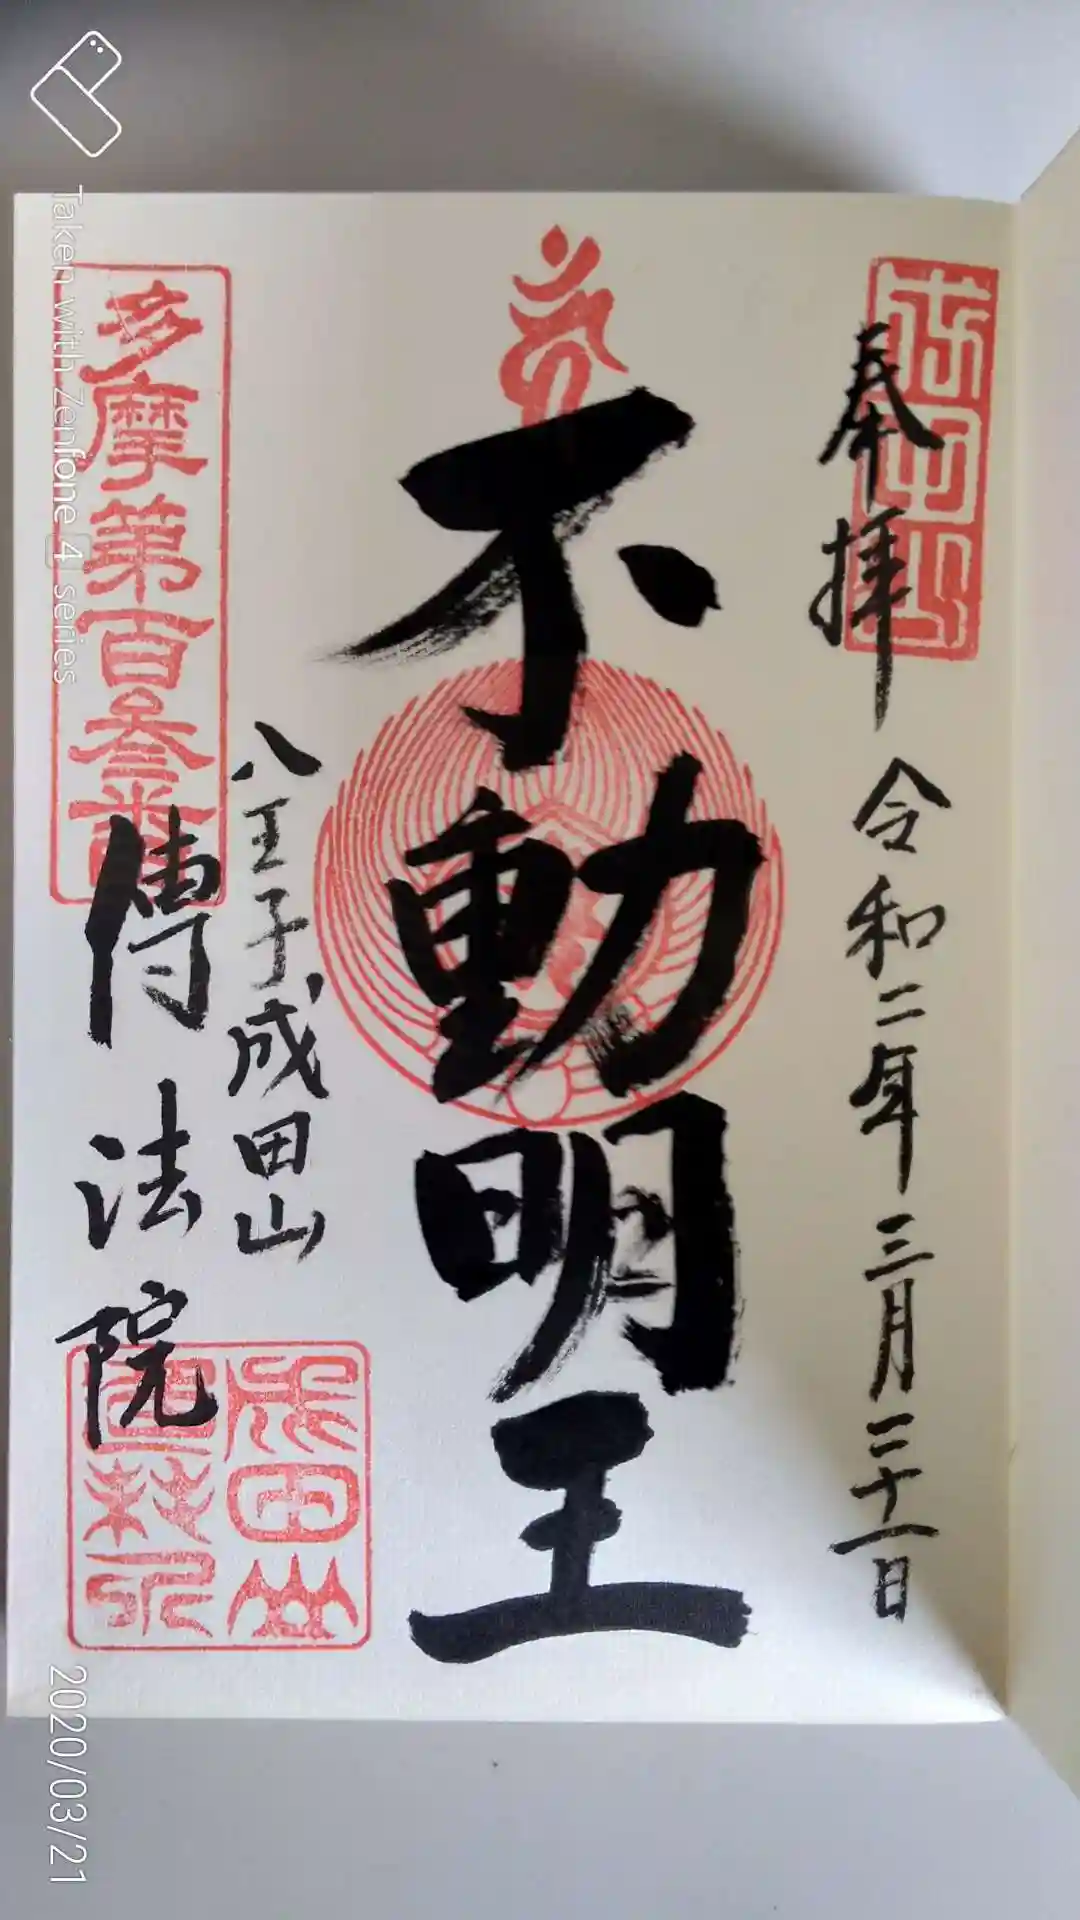 成田山
奉拝
令和二年三月二十一日
不動明王
八王子成田山
傳法院
多摩第百叁番
成田山
Taken with Zenfone 4 series
2020/03/21